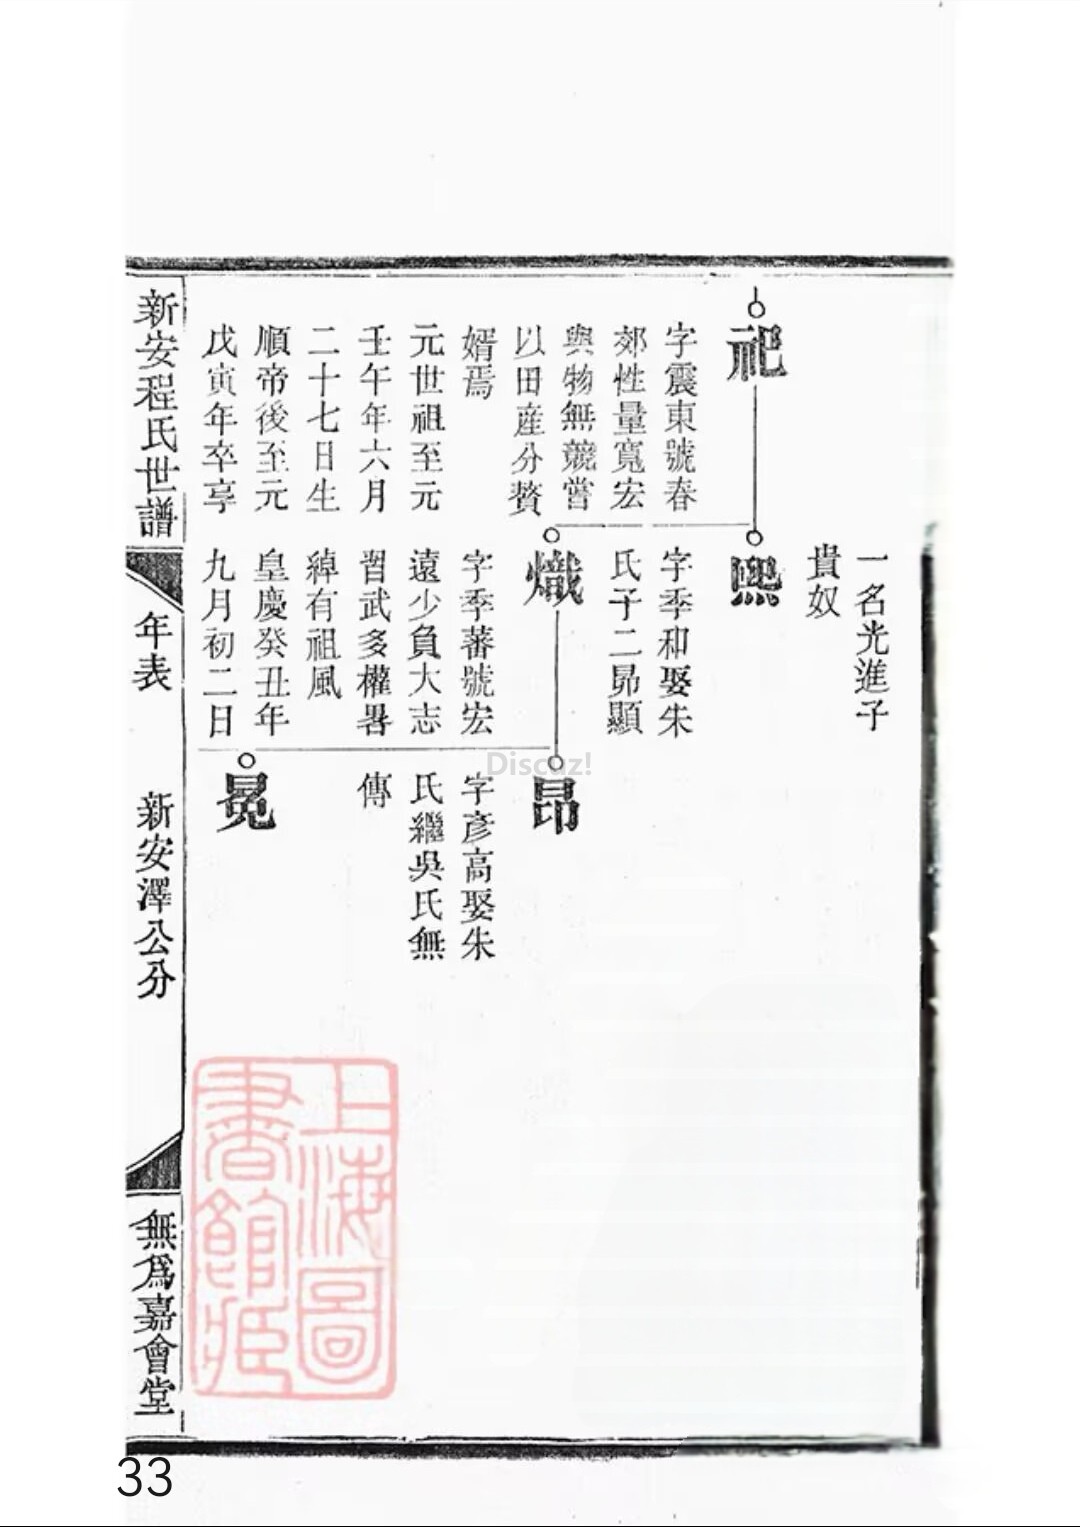 一名光進子
貴奴
祀
字震東號春
郊性量寬宏
與物無競嘗
以田産分贅
婿焉
元世祖至元
壬午年六月
二十七日生
順帝後至元
戊寅年卒享
熙
字季和娶朱
氏子二昴顯
熾
字季蕃號宏
遠少負大志
習武多權畧
綽有祖風
皇慶癸丑年
九月初二日
昂
字彥高娶朱
氏繼吳氏無
傳
冕
新安程氏世譜
年表
新安澤公分
無為嘉會堂
上海圖
書館藏
Discuz!
33